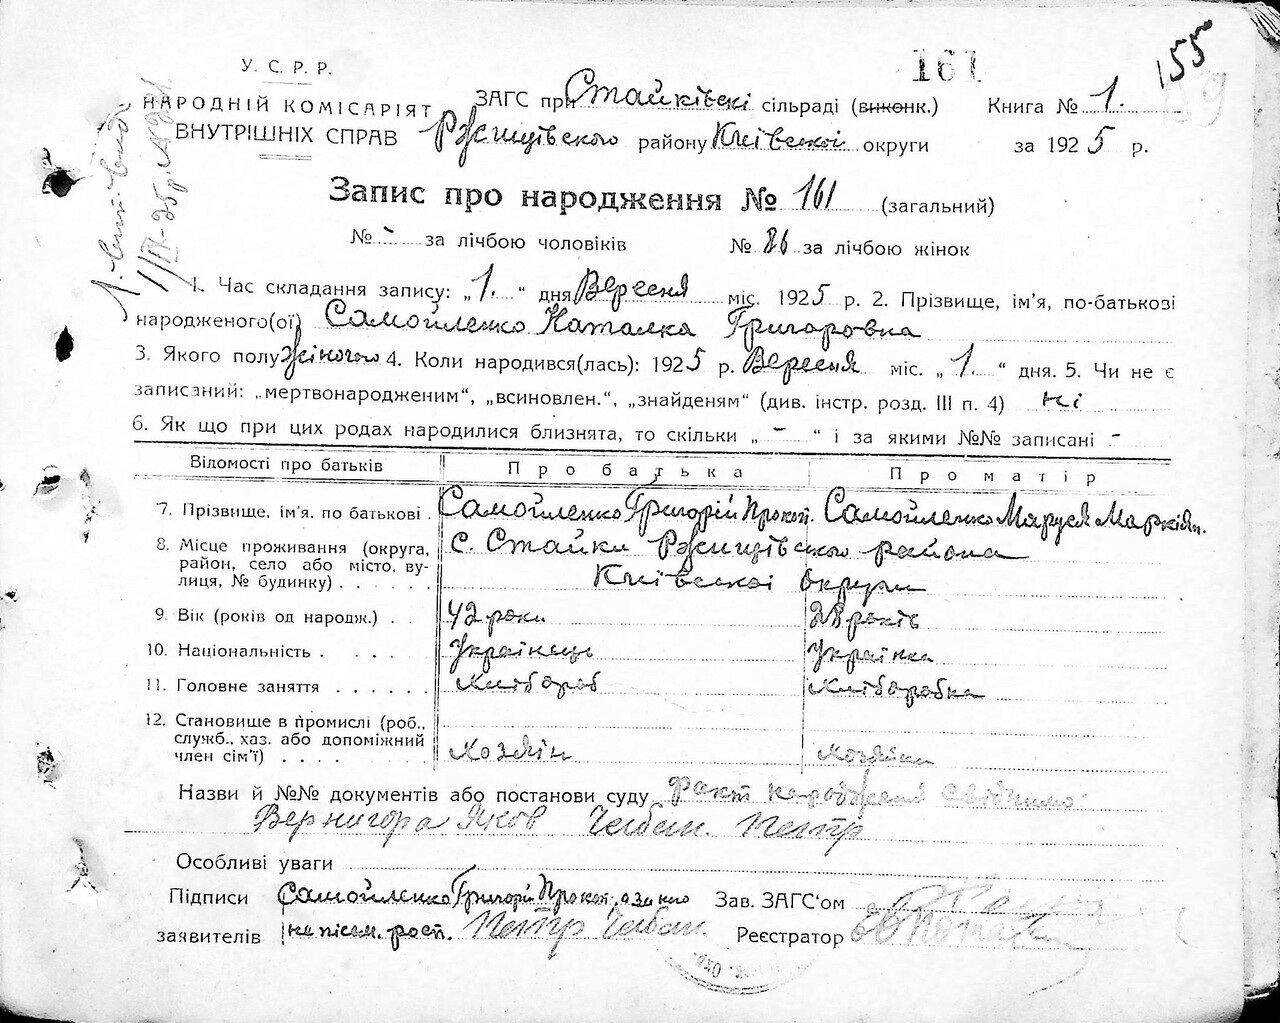 161
155
У. С. Р. Р.
НАРОДНІЙ КОМІСАРІЯТ
ВНУТРІШНІХ СПРАВ
ЗАГС при Стайківскі сільраді (виконк.) Книга № 1.
Ржищівского району Київскоі округи за 1925 р.
Запис про народження № 161 (загальний)
№ - за лічбою чоловіків № 86 за лічбою жінок
1. Час складання запису: „1.“ дня Вересня міс. 1925 р. 2. Прізвище, ім’я, по-батькові
народженого(ої) Самойленко Наталка Григоровна
3. Якого полу жіночого 4. Коли народився(лась): 1925 р. Вересня міс. „1.“ дня. 5. Чи не є
записаний: „мертвонародженим“, „всиновлен.“, „знайденям“ (див. інстр. розд. III п. 4) ні
6. Як що при цих родах народилися близнята, то скільки „-“ і за якими №№ записані -
Відомості про батьків Про батька Про матір
7. Прізвище, ім’я, по батькові . Самойленко Григорій Прокоп. Самойленко Маруся Маркіян.
8. Місце проживання (округа, с. Стайки Ржищівского района
район, село або місто, ву-
лиця, № будинку) . . . . . Київскоі округи
9. Вік (років од народж.) . . 42 роки 28 років
10. Національність . . . . Українець Українка
11. Головне заняття . . . . . . Хлібороб Хлібаробка
12. Становище в промислі (роб.,
служб., хаз. або допоміжний
член сім’ї) . . . . Хозяїн Хозяйка
Назви й №№ документів або постанови суду факт народження свідчимо:
Вернигора Яков Чабан. Петр
Особливі уваги
Підписи Самойленко Григорій Прокоп., а за його Зав. ЗАГС‘ом
заявителів непісьм. росп. Петр Чабан. Реєстратор